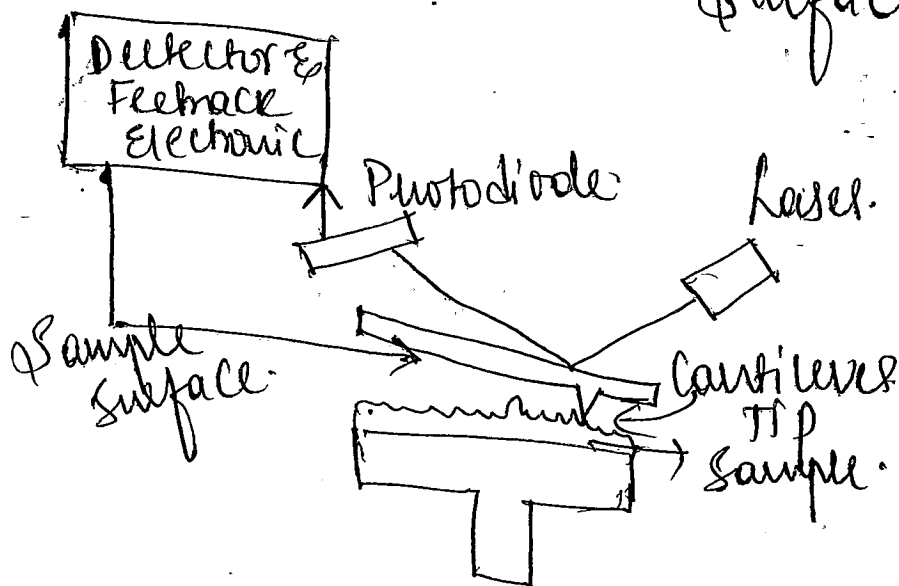 Surfac
Detector &
Feetback
Electronic
Photodiode
Laser.
Sample
surface.
Cantilever
Tip
Sample.